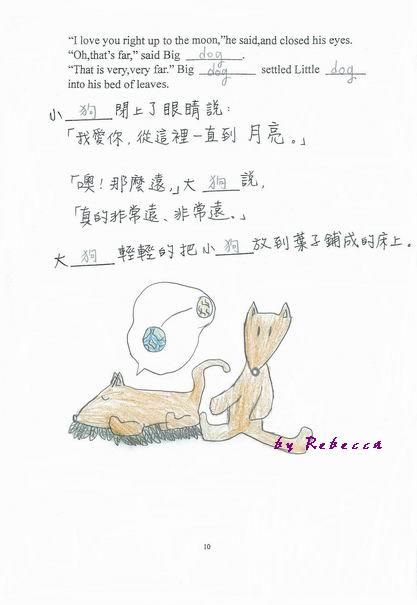 “I love you right up to the moon,”he said,and closed his eyes.
“Oh,that’s far,” said Big dog.
“That is very,very far.” Big dog settled Little dog
into his bed of leaves.
小狗閉上了眼睛說:
「我愛你，從這裡一直到月亮。」
「噢！那麼遠，」大狗說，
「真的非常遠、非常遠。」
大狗輕輕的把小狗放到葉子鋪成的床上。
by Rebecca
10